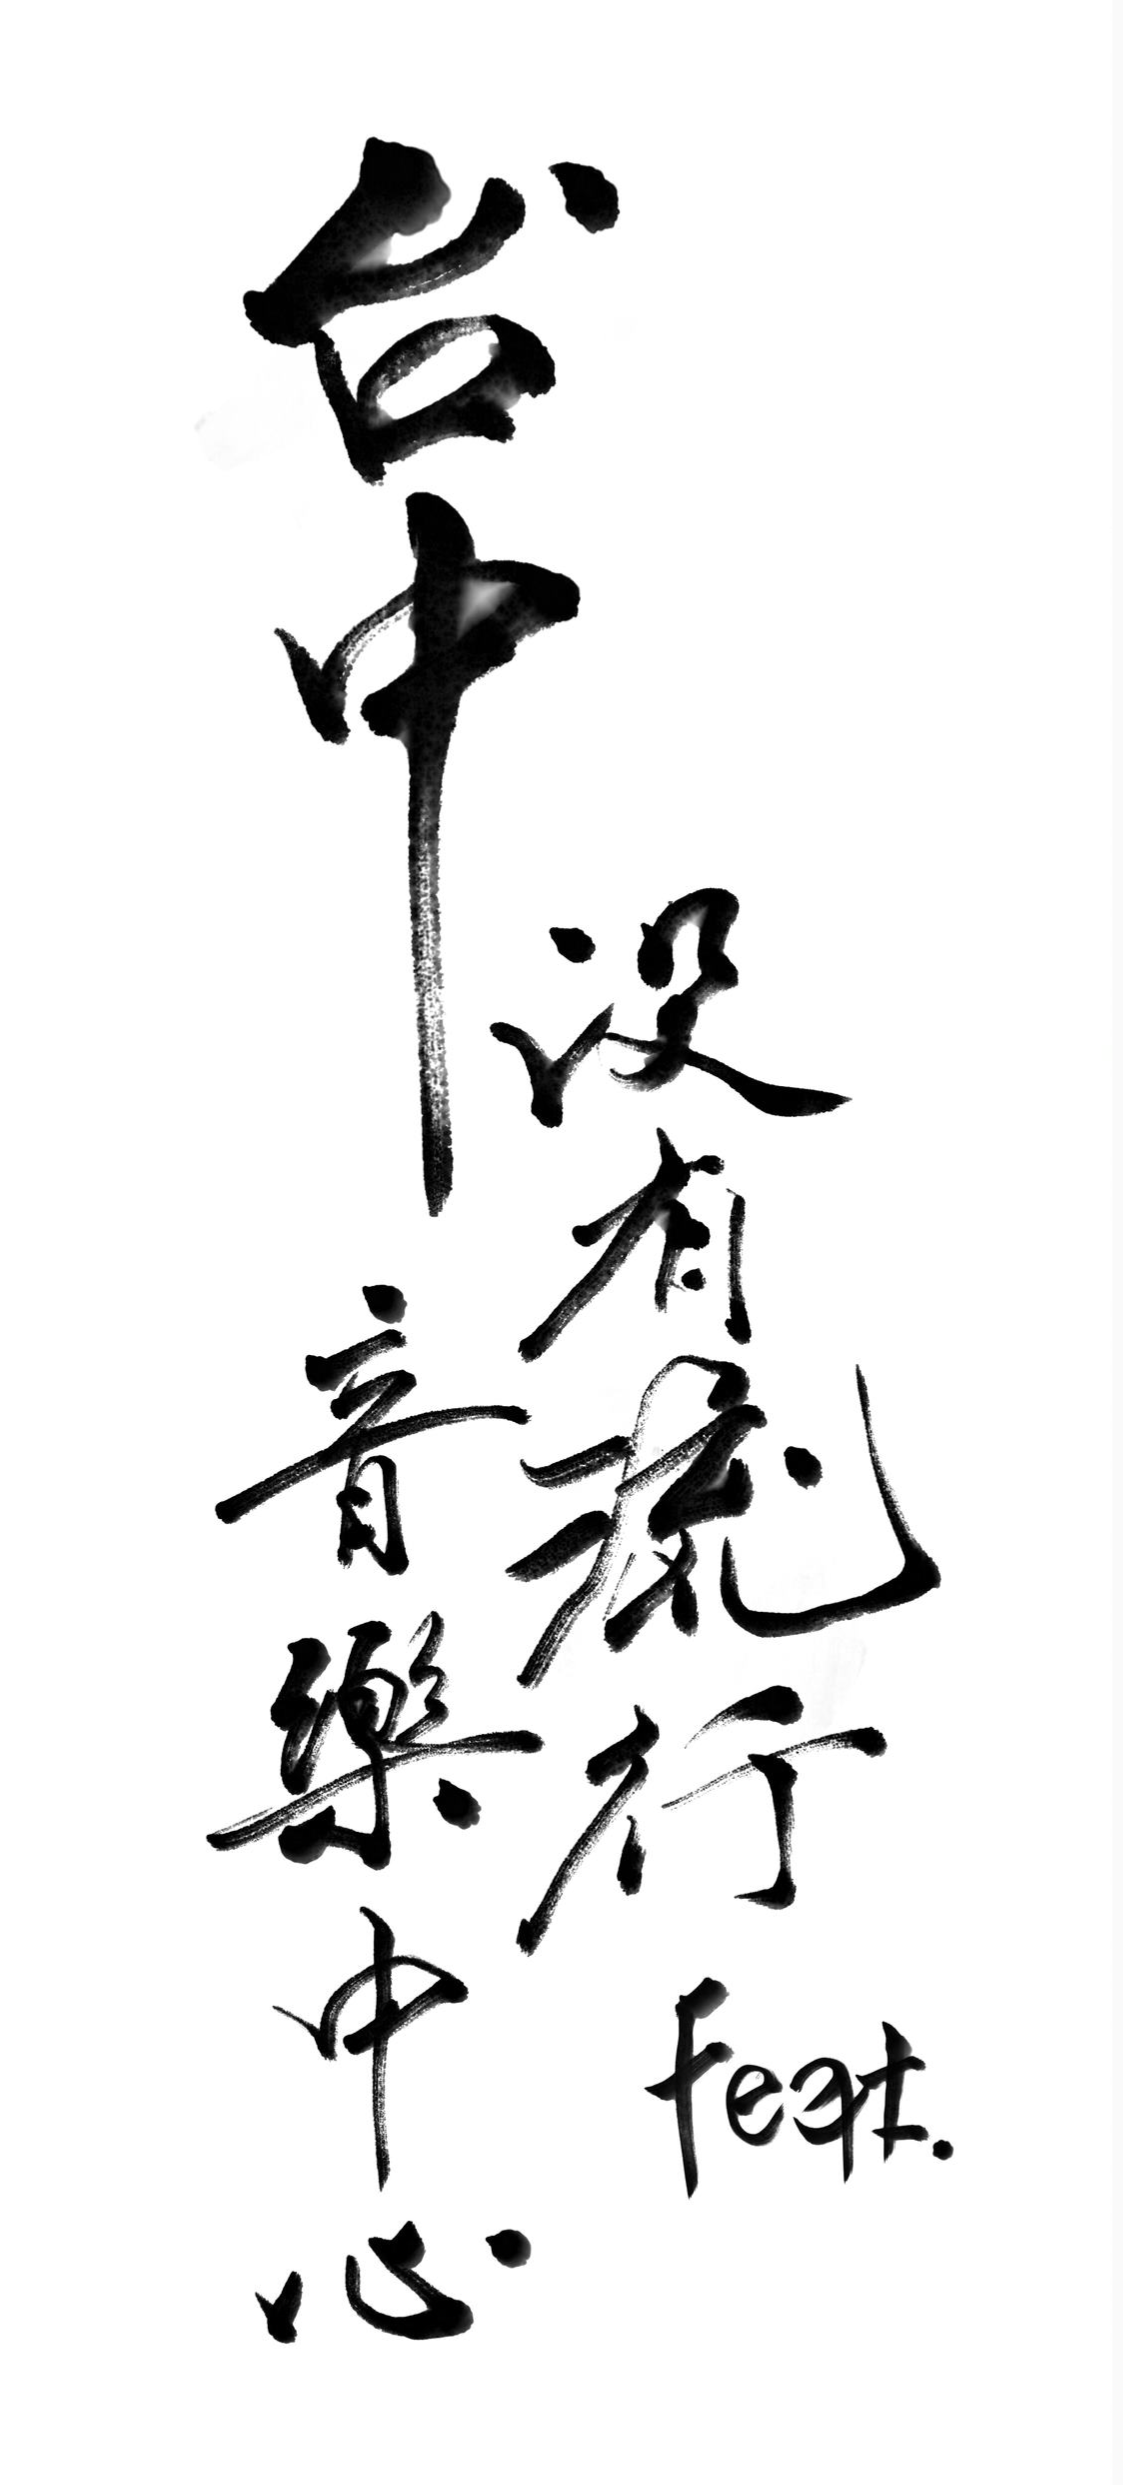 台中
没有流行
feat.
音樂中心